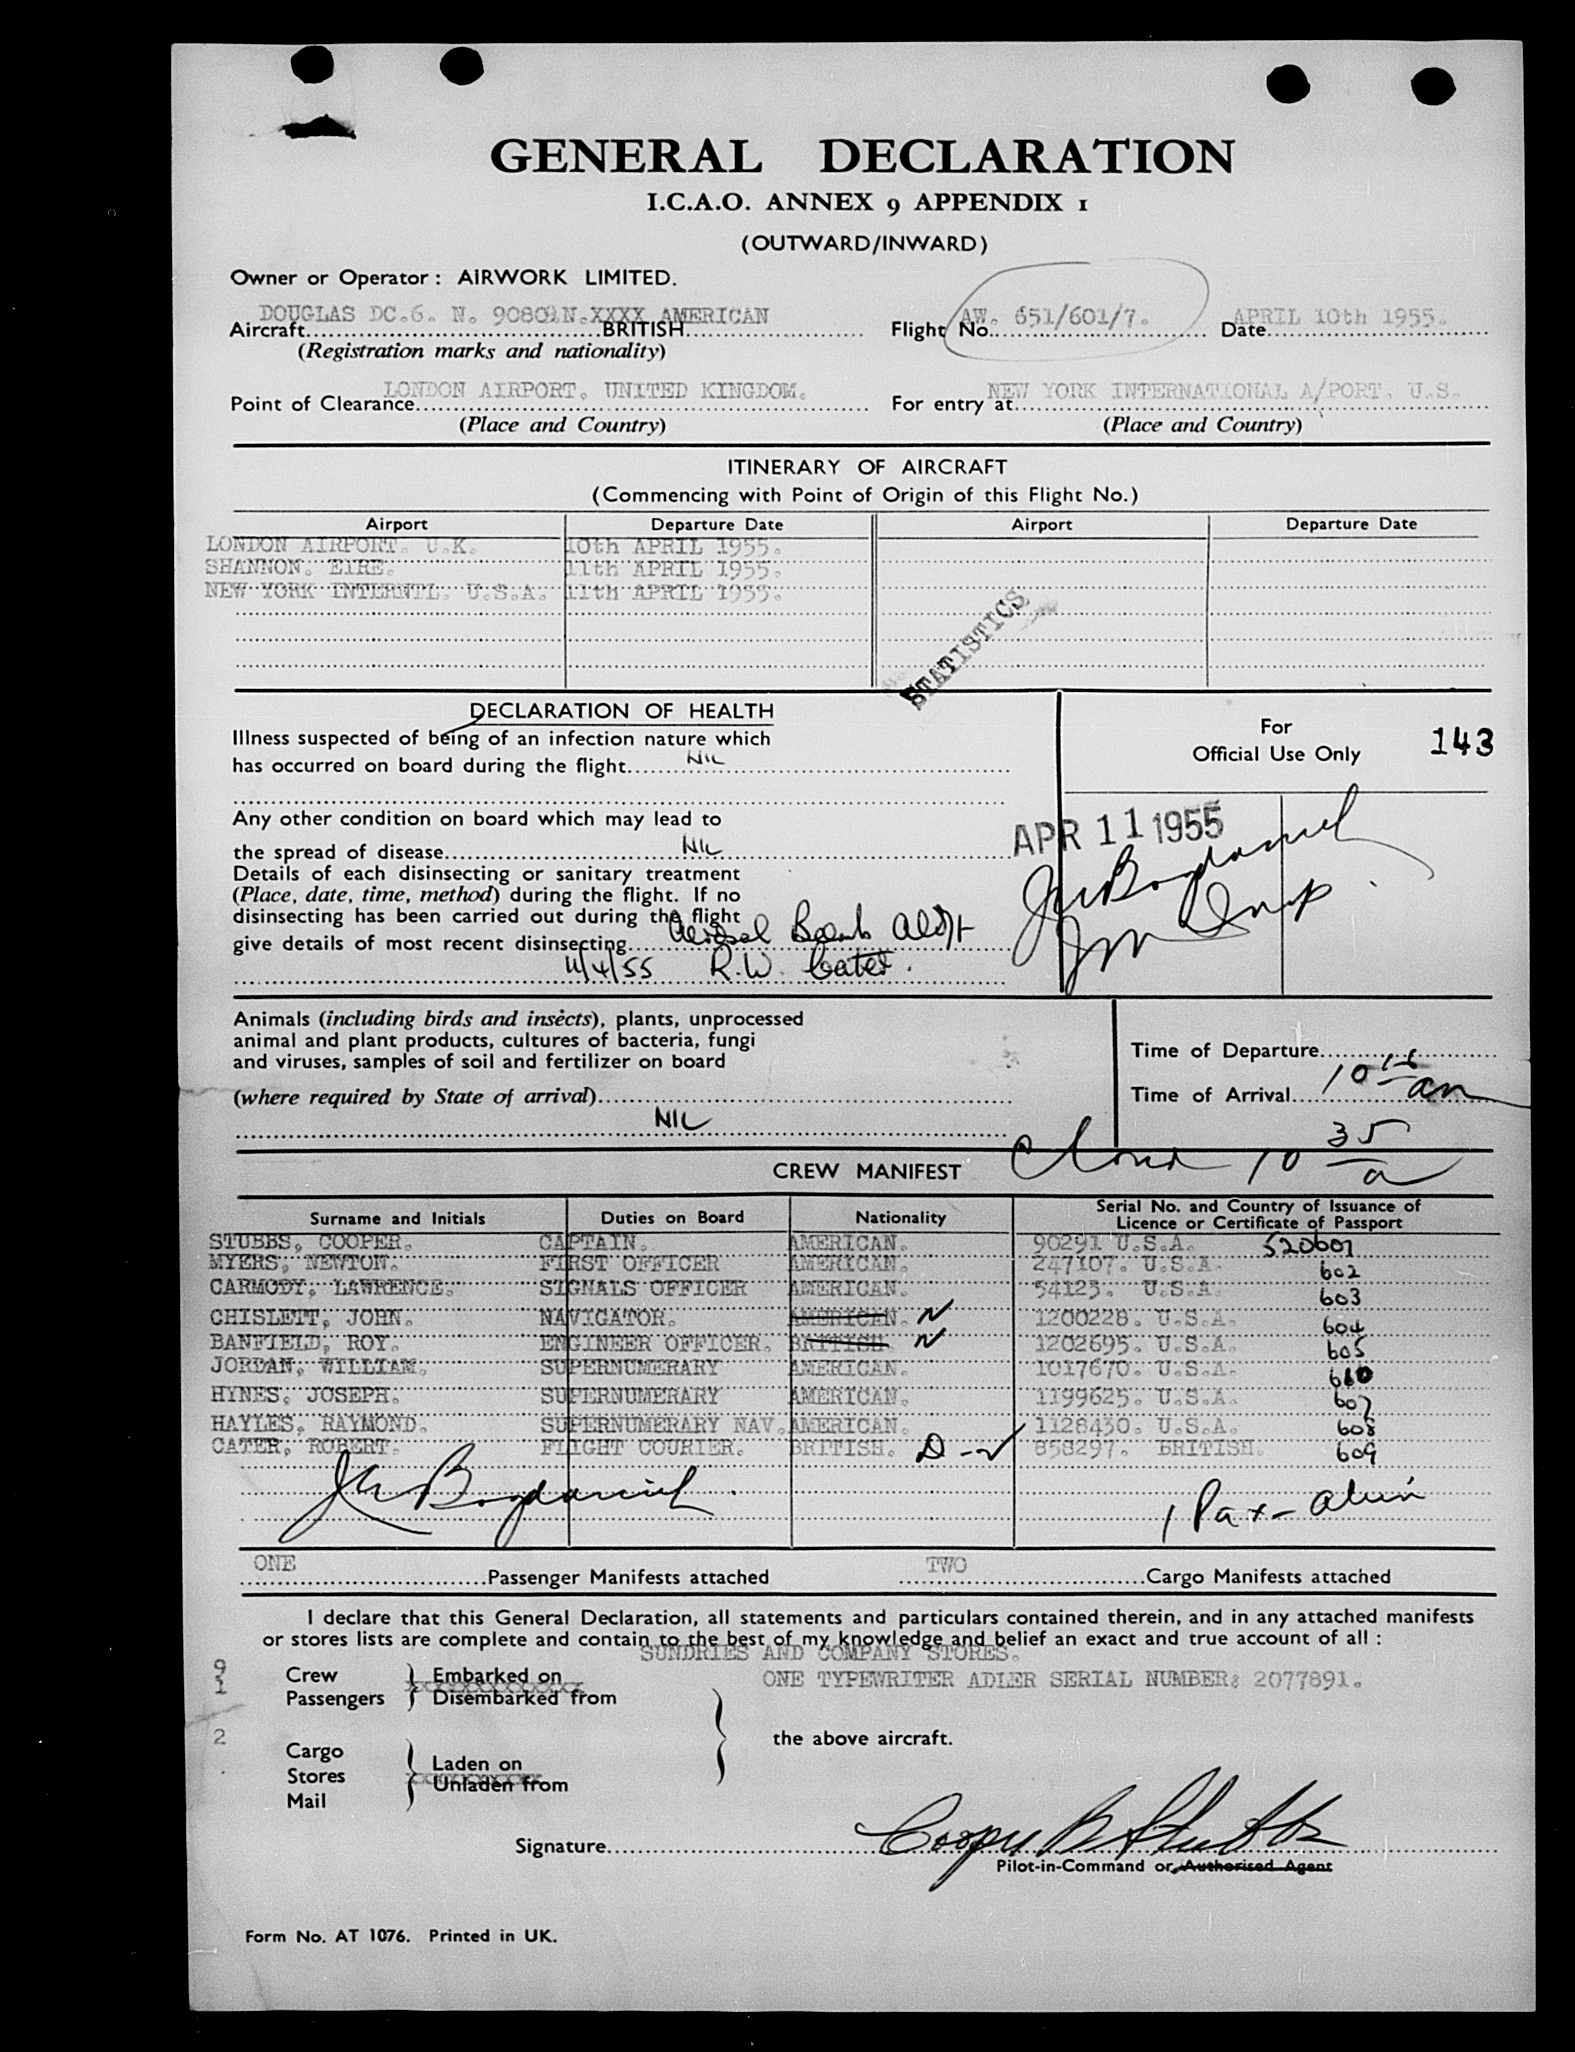 GENERAL DECLARATION
I.C.A.O. ANNEX 9 APPENDIX 1
(OUTWARD/INWARD)
Owner or Operator: AIRWORK LIMITED.
DOUGLAS DC.6. N. 90809 N.XXXX AMERICAN
Aircraft BRITISH
(Registration marks and nationality)
Flight No. AW. 651/601/7.
Date APRIL 10th 1955.
Point of Clearance LONDON AIRPORT, UNITED KINGDOM.
(Place and Country)
For entry at NEW YORK INTERNATIONAL A/PORT. U.S.
(Place and Country)
ITINERARY OF AIRCRAFT
(Commencing with Point of Origin of this Flight No.)
Airport Departure Date Airport Departure Date
LONDON AIRPORT. U.K. 10th APRIL 1955.
SHANNON. EIRE. 11th APRIL 1955.
NEW YORK INTERNTL. U.S.A. 11th APRIL 1955.
STATISTICS
DECLARATION OF HEALTH
Illness suspected of being of an infection nature which
has occurred on board during the flight NIL
Any other condition on board which may lead to
the spread of disease NIL
Details of each disinsecting or sanitary treatment
(Place, date, time, method) during the flight. If no
disinsecting has been carried out during the flight
give details of most recent disinsecting Aerosol Bomb
11/4/55 R.W. Cater.
For
Official Use Only
143
APR 11 1955
Animals (including birds and insects), plants, unprocessed
animal and plant products, cultures of bacteria, fungi
and viruses, samples of soil and fertilizer on board
(where required by State of arrival)
NIL
Time of Departure
Time of Arrival 10 15 am
10 35 a
CREW MANIFEST
Surname and Initials Duties on Board Nationality Serial No. and Country of Issuance of Licence or Certificate of Passport
STUBBS, COOPER. CAPTAIN. AMERICAN. 90291 U.S.A. 520601
MYERS, NEWTON. FIRST OFFICER AMERICAN. 247107. U.S.A. 602
CARMODY, LAWRENCE. SIGNALS OFFICER AMERICAN. 54123. U.S.A. 603
CHISLETT, JOHN. NAVIGATOR. AMERICAN. 1200228. U.S.A. 604
BANFIELD, ROY. ENGINEER OFFICER. BRITISH. 1202695. U.S.A. 605
JORDAN, WILLIAM. SUPERNUMERARY AMERICAN. 1017670. U.S.A. 610
HYNES, JOSEPH. SUPERNUMERARY AMERICAN. 1199625. U.S.A. 607
HAYLES, RAYMOND. SUPERNUMERARY NAV. AMERICAN. 1128430. U.S.A. 608
CATER, ROBERT. FLIGHT COURIER. BRITISH. 858297. BRITISH. 609
1 Pax - alien
ONE Passenger Manifests attached
TWO Cargo Manifests attached
I declare that this General Declaration, all statements and particulars contained therein, and in any attached manifests
or stores lists are complete and contain to the best of my knowledge and belief an exact and true account of all:
SUNDRIES AND COMPANY STORES.
ONE TYPEWRITER ADLER SERIAL NUMBER: 2077891.
9 Crew
1 Passengers
Embarked on
Disembarked from
2
Cargo
Stores
Mail
Laden on
Unladen from
the above aircraft.
Signature Cooper B Stubbs
Pilot-in-Command or Authorised Agent
Form No. AT 1076. Printed in UK.